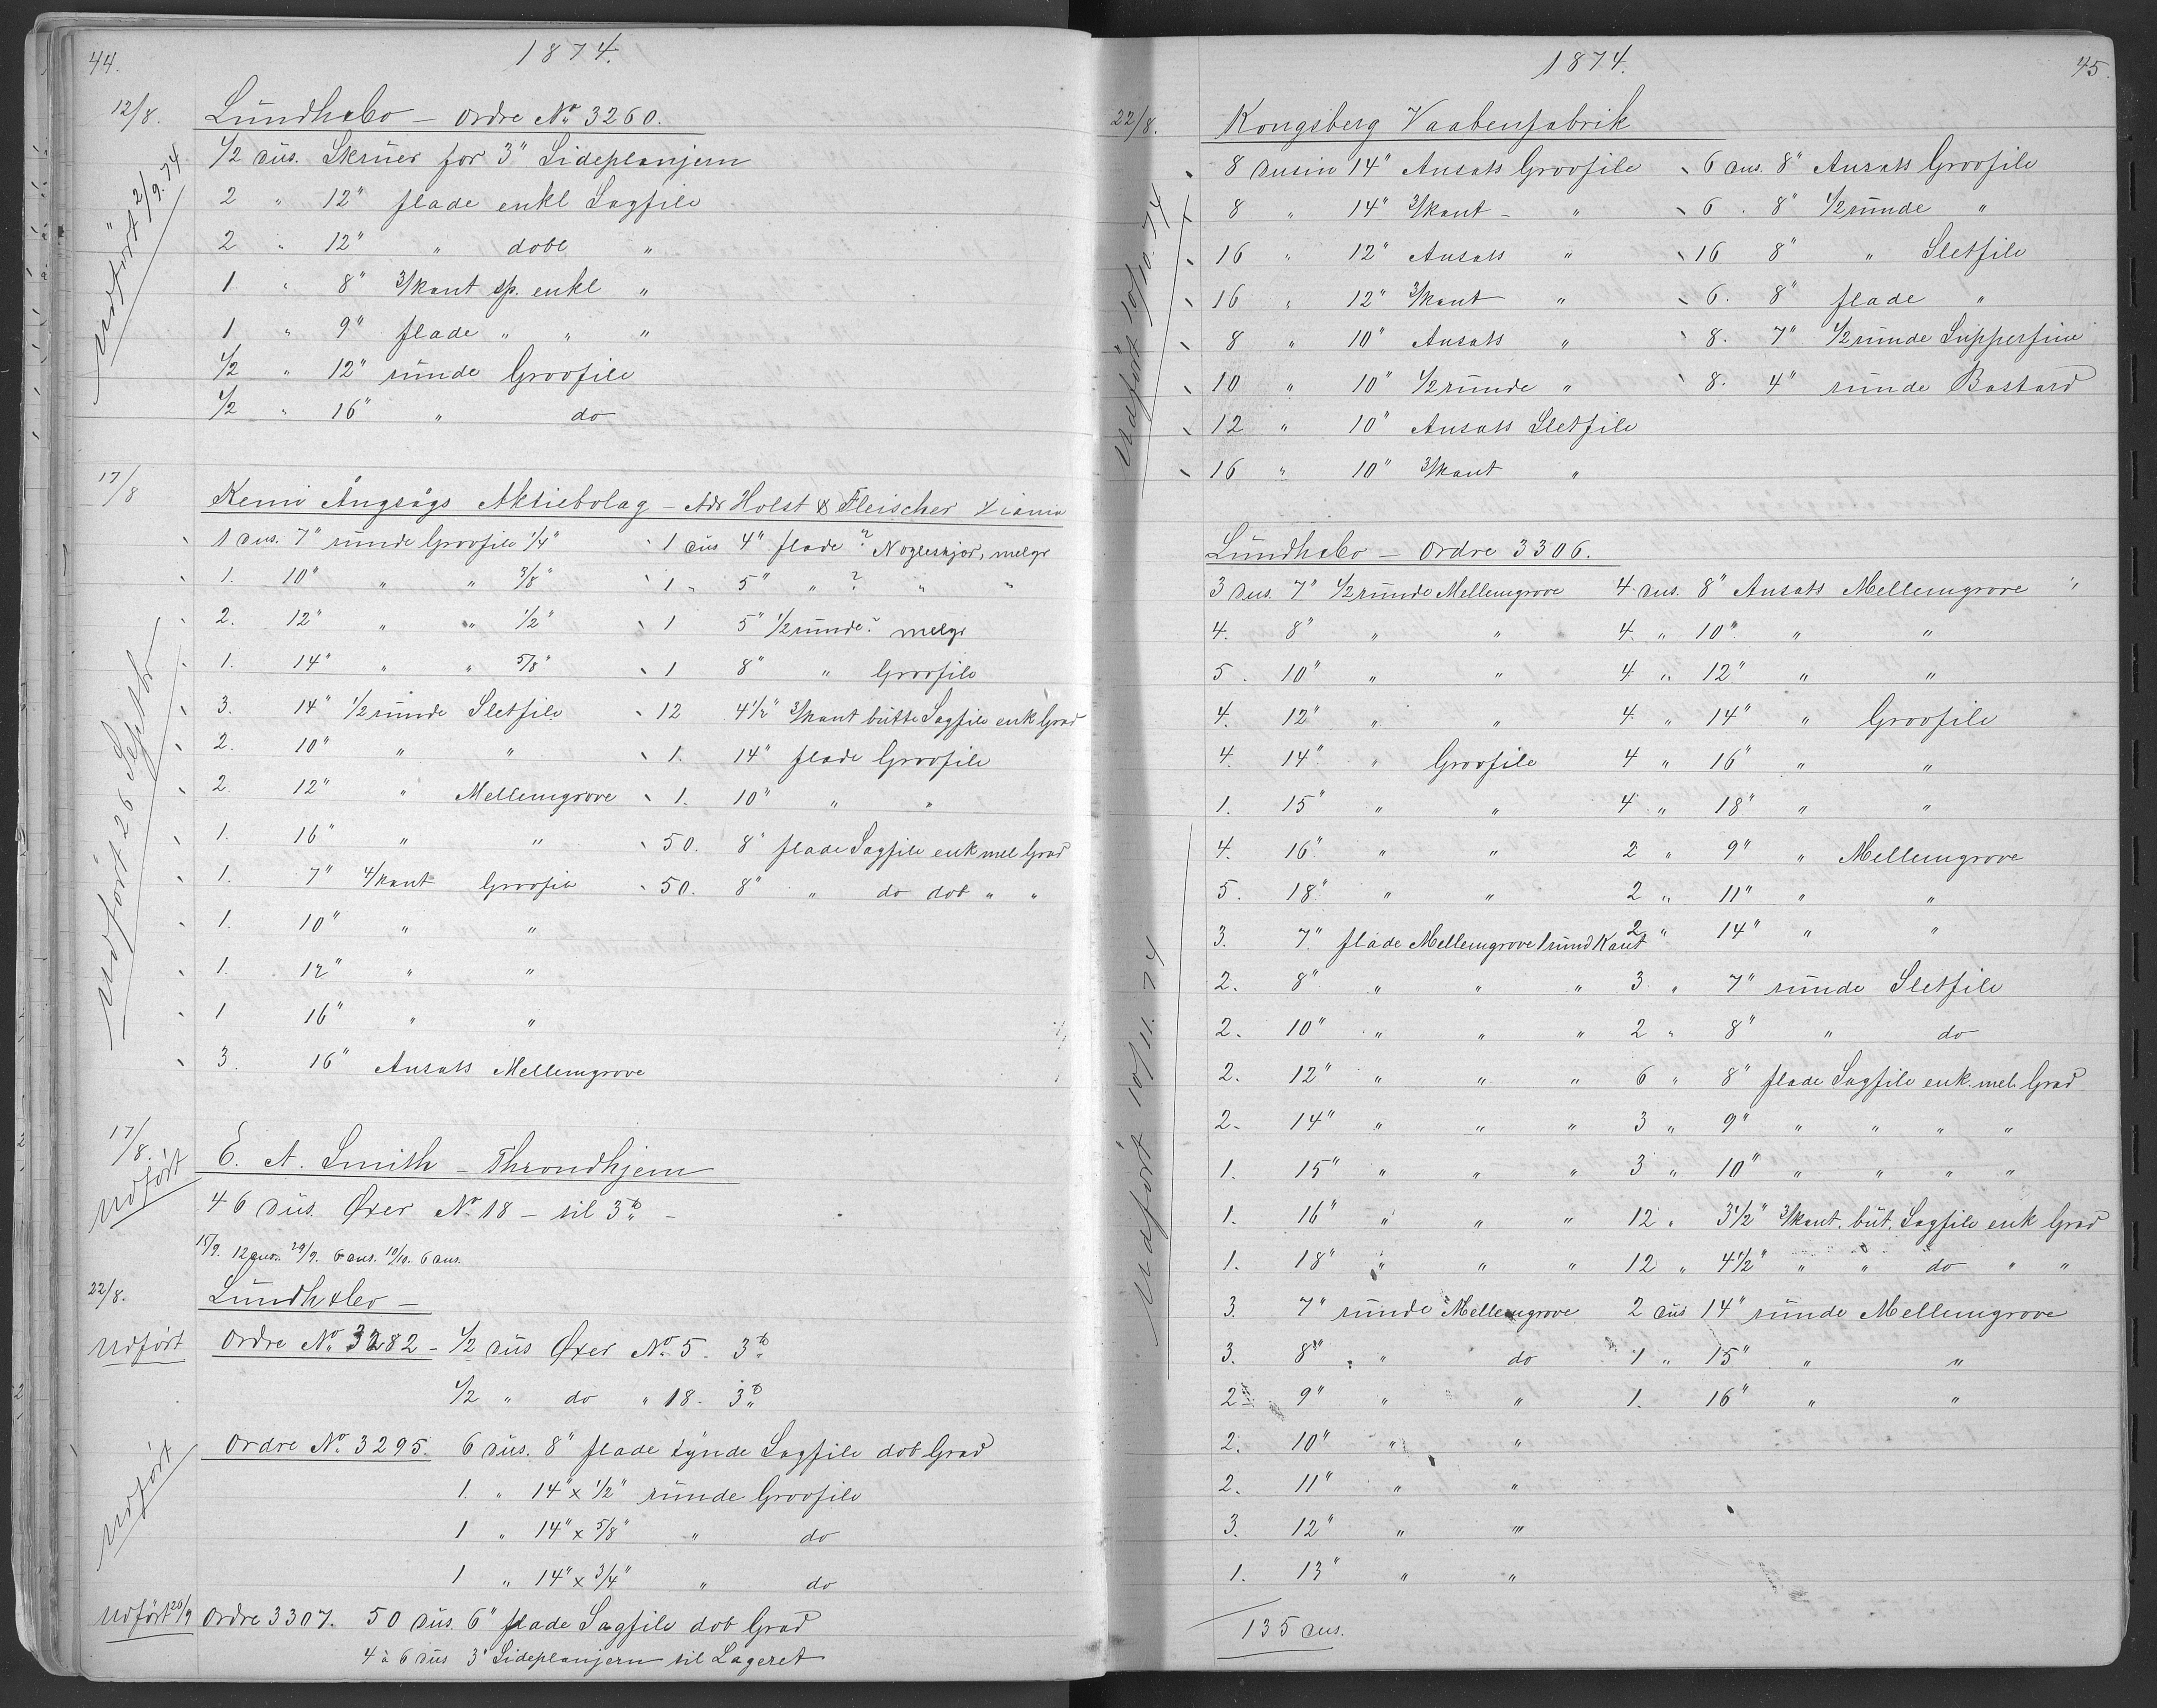 44.
1874.
12/8.
Lundh & Co – Ordre No 3260.
Udført 2/9.74
1/2 dus. Skruer for 3" Sidepløvjern
2 " 12" flade enkl Sagfile
2 " 12" " dobl "
1 " 8" 3/kant sp. enkl "
1 " 9" flade " " "
1/2 " 12" runde Grovfile
1/2 " 16" " do
17/8
Kemi Ångsågs Aktiebolag – Adr Holst & Fleischer Xiania
Udført 26 Septbr
1 dus. 7" runde Grovfile 1/4" 1 dus 4" flade ? Nøgleskjær, melgr
1. 10" " " 3/8" 1 " 5" " ? " "
2. 12" " " 1/2" 1 5" 1/2 runde ? melgr
1. 14" " " 5/8" 1 8" " Grovfile
3. 14" 1/2 runde Sletfile 12 4 1/2" 3/kant butte Sagfile enk Grad
2. 10" " " 1. 14" flade Grovfile
2. 12" " Mellemgrove 1. 10" " "
1. 16" " " 50. 8" flade Sagfile enk mel Grad
1. 7" 4/kant Grovfile 50. 8" " do dob " "
1. 10" " "
1. 12" " "
1 16" " "
3. 16" Ansats Mellemgrove
17/8.
Udført
E. A. Smith – Throndhjem
46 dus. Øxer No 18 – til 3 ℔ –
15/9. 12 dus. 29/9. 6 dus. 10/10. 6 dus.
22/8.
Lundh & Co –
Udført Ordre No 3282 – 1/2 dus Øxer No 5. 3 ℔
1/2 " do " 18. 3 ℔
Udført
Ordre No 3295. 6 dus. 8" flade tynde Sagfile dob Grad
1. " 14" x 1/2" runde Grovfile
1 " 14" x 5/8" " do
1 " 14" x 3/4" " do
Udført 26/9 Ordre 3307. 50 dus. 6" flade Sagfile dob Grad
4 à 6 dus 3" Sidepløvjern til Lageret
1874.
45.
22/8.
Kongsberg Vaabenfabrik
Udført 10/10.74
8 dusin 14" Ansats Grovfile 6 dus. 8" Ansats Grovfile
8 " 14" 3/kant – " 6 . 8" 1/2 runde "
16 " 12" Ansats " 16 8" " Sletfile
16 " 12" 3/kant " 6. 8" flade "
8 " 10" Ansats " 8. 7" 1/2 runde Supperfine
10 " 10" 1/2 runde " 8. 4" runde Bastard
12 " 10" Ansats Sletfile
16 " 10" 3/kant "
Lundh & Co – Ordre 3306.
Udført 10/11.74
3 dus. 7" 1/2 runde Mellemgrove 4 dus. 8" Ansats Mellemgrove "
4. 8" " " 4. " 10" " "
5. 10" " " 4 " 12" " "
4. 12" " " 4. " 14" " Grovfile
4. 14" " Grovfile 4 " 16" " "
1. 15" " " 4 " 18" " "
4. 16" " " 2 " 9" " Mellemgrove
5. 18" " " 2 " 11" " "
3. 7" flade Mellemgrove 1 rund Kant 2 " 14" " "
2. 8" " " " 3 " 7" runde Sletfile
2. 10" " " " 2 " 8" " do
2. 12" " " " 6 " 8" flade Sagfile enk. mel. Grad
2. 14" " " " 3 " 9" " " " "
1. 15" " " " 3 " 10" " " " "
1. 16" " " " 12 " 3 1/2" 3/kant. but. Sagfile enk Grad
1. 18" " " " 12 " 4 1/2" " " do " "
3. 7" runde Mellemgrove 2 dus 14" runde Mellemgrove
3. 8" " do 1 " 15" " "
2 " 9" " " 1. 16" " "
2. 10" " "
2. 11" " "
3. 12" " "
1. 13" " "
135 dus.